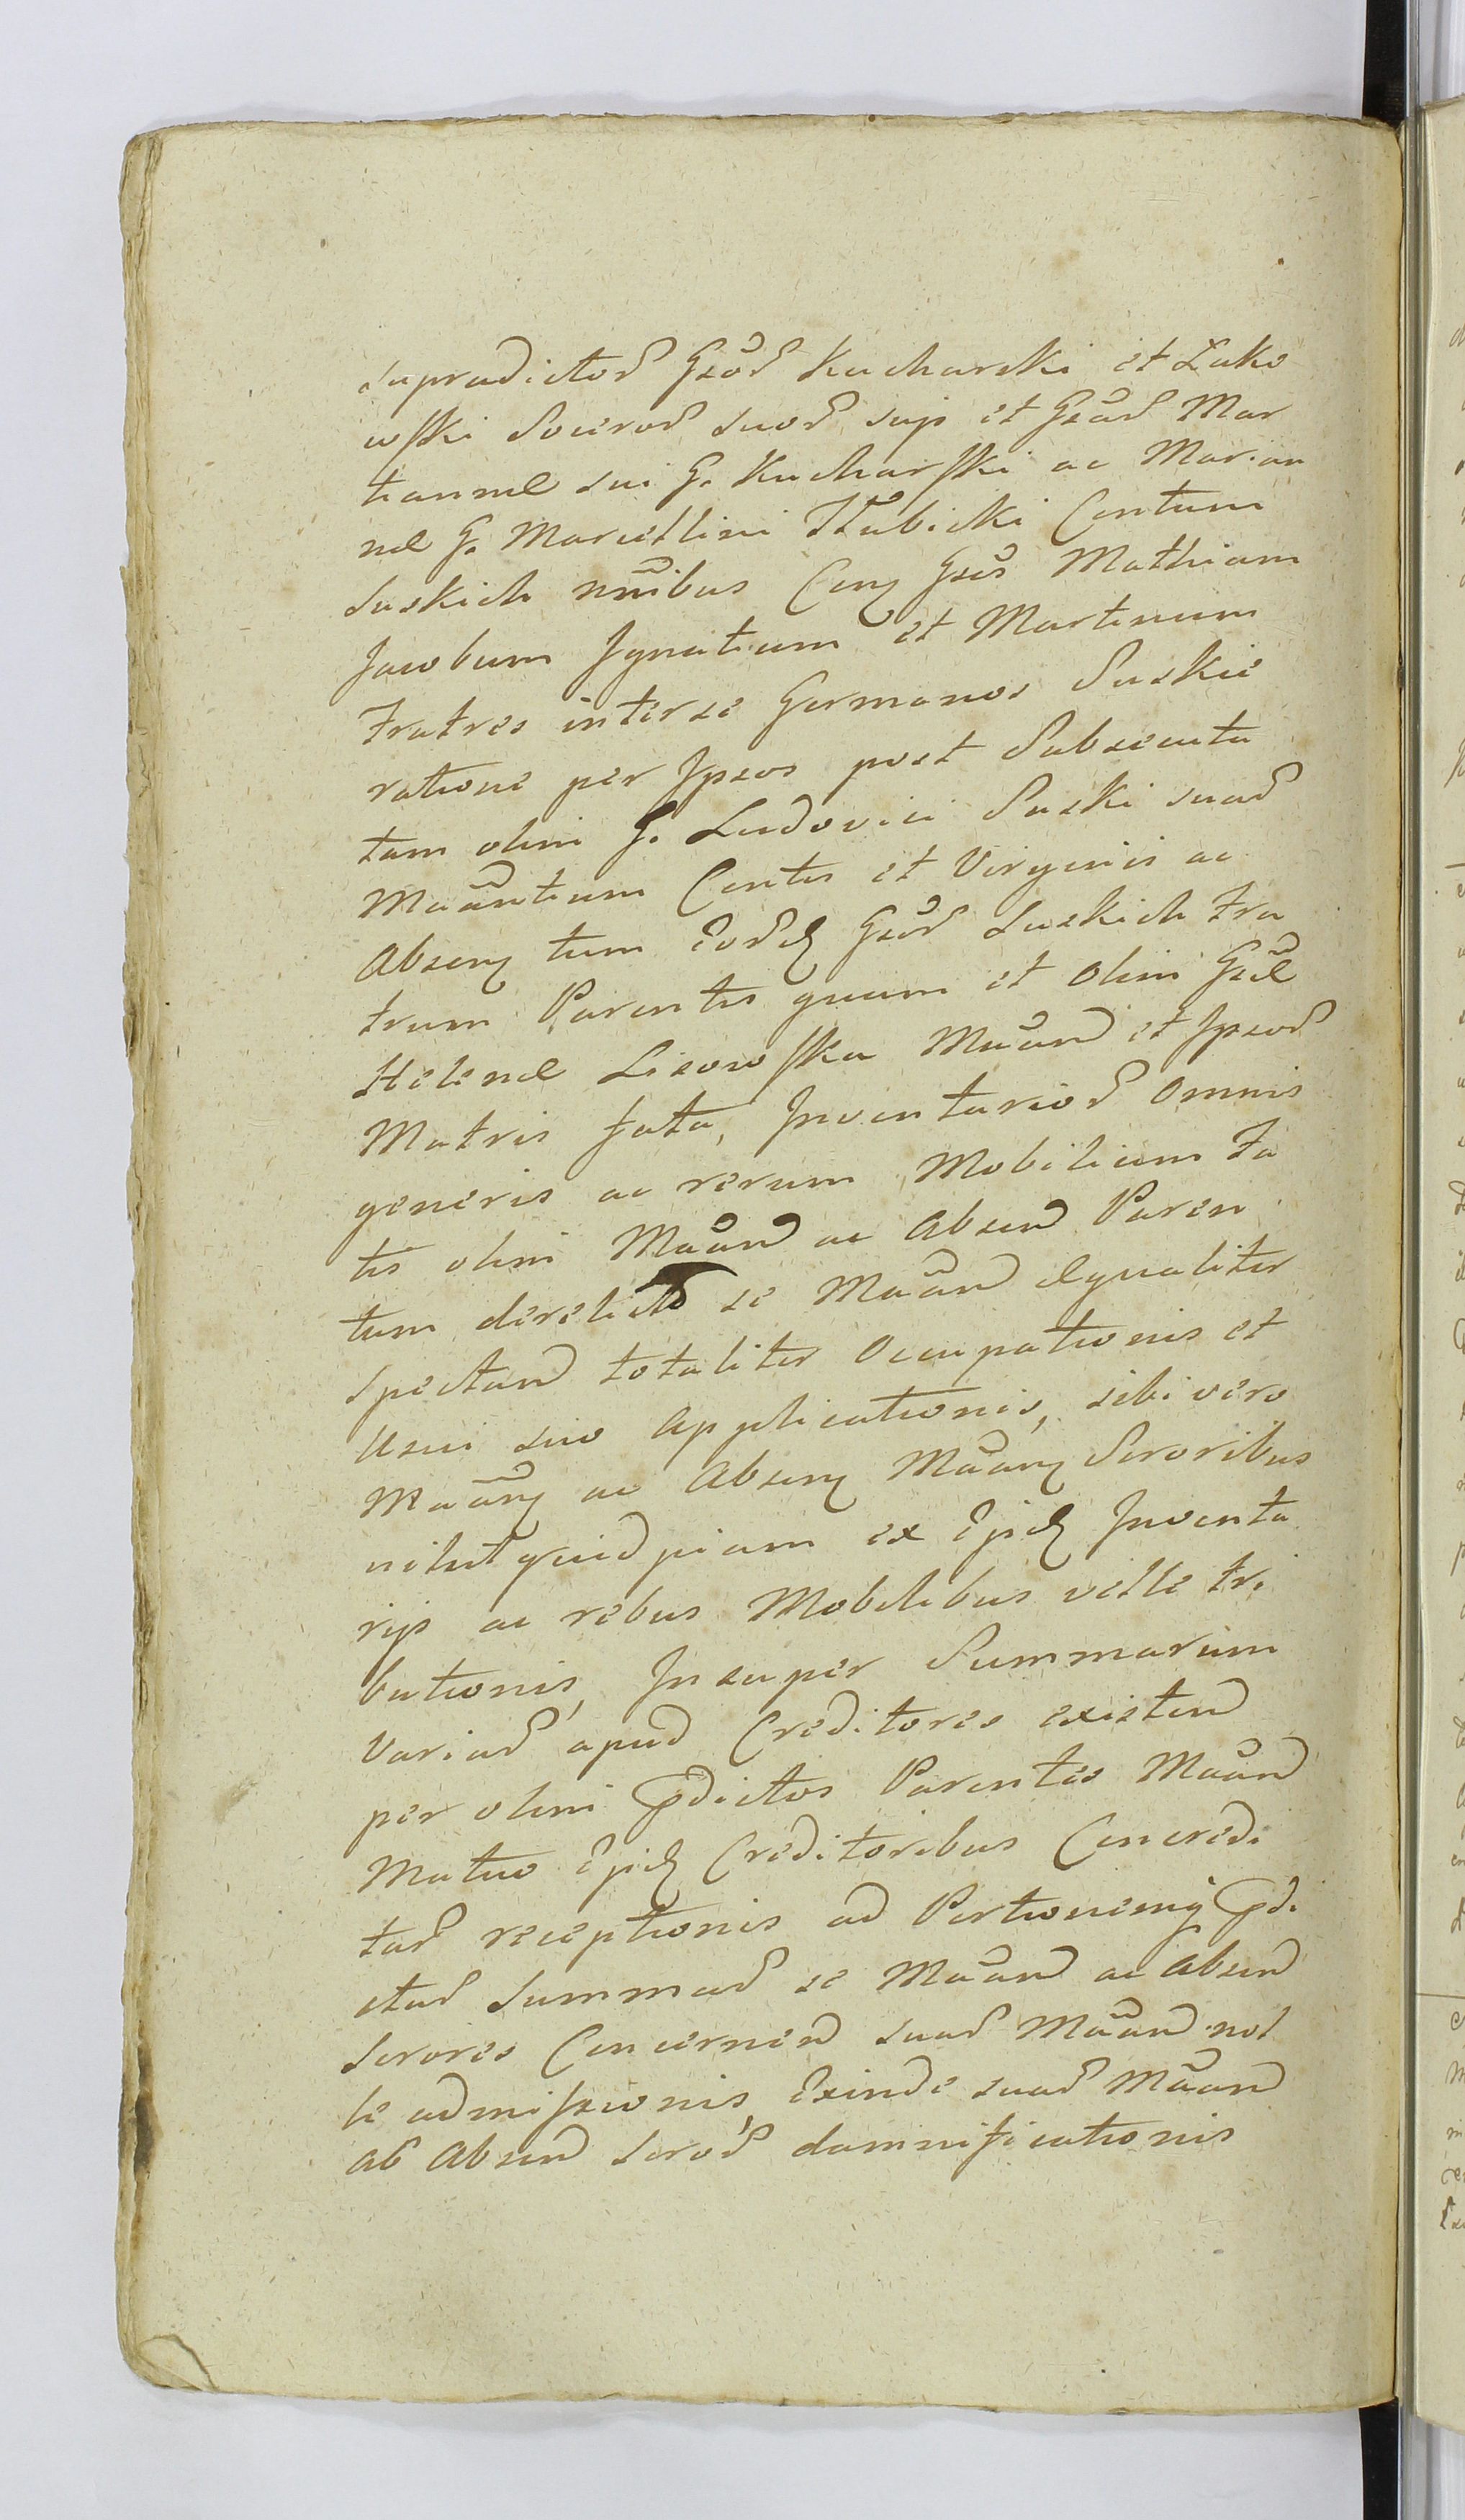 supradictor Gsor Kucharski et Łako
wski Soceror suor sup et Gsar Mar
tiannae sui G. Kucharski ac Marian
nae G. Marcellini Słubicki Contum
Suskich nnibus Conq Gsos Mathiam
Jacobum Jgnatium et Martinum
Fratres inter se Germanos Suskie
ratione per Jpsos post Subsecuta
tam olim G. Ludovici Suski suar
Maantium Contis et Virginis ac
Absenq tum Eordq Gsor Suskich Fra
trum Parentis quum et Olim Gsae
Helenae Lisowska Maand et Jpsor
Matris fata, Jnventarior Omnis
generis ac rerum Mobilium Fa
tis olim Maand ac Absend Paren
tum derelicto se Maand aequaliter
Spectand totaliter Occupationis et
Usui suo Applicationis, sibi vero
Maanq ac Absenq Maanq Sororibus
nihil quidpiam ex Ejsdq Jnventa
rijs ac rebus Mobilibus velle tri
butionis, Jnsuper Summarum
Variar apud Creditores existend
per olim pdictos Parentes Maand
Mutuo Ejsdq Creditoribus Concredi
tar receptionis ad Portionemq pdi
ctar Summar se Maand ac Absend
Sorores Concernend suar Maand nol
le admissionis, Exinde suar Maand
ab Absend Soror damnificationis